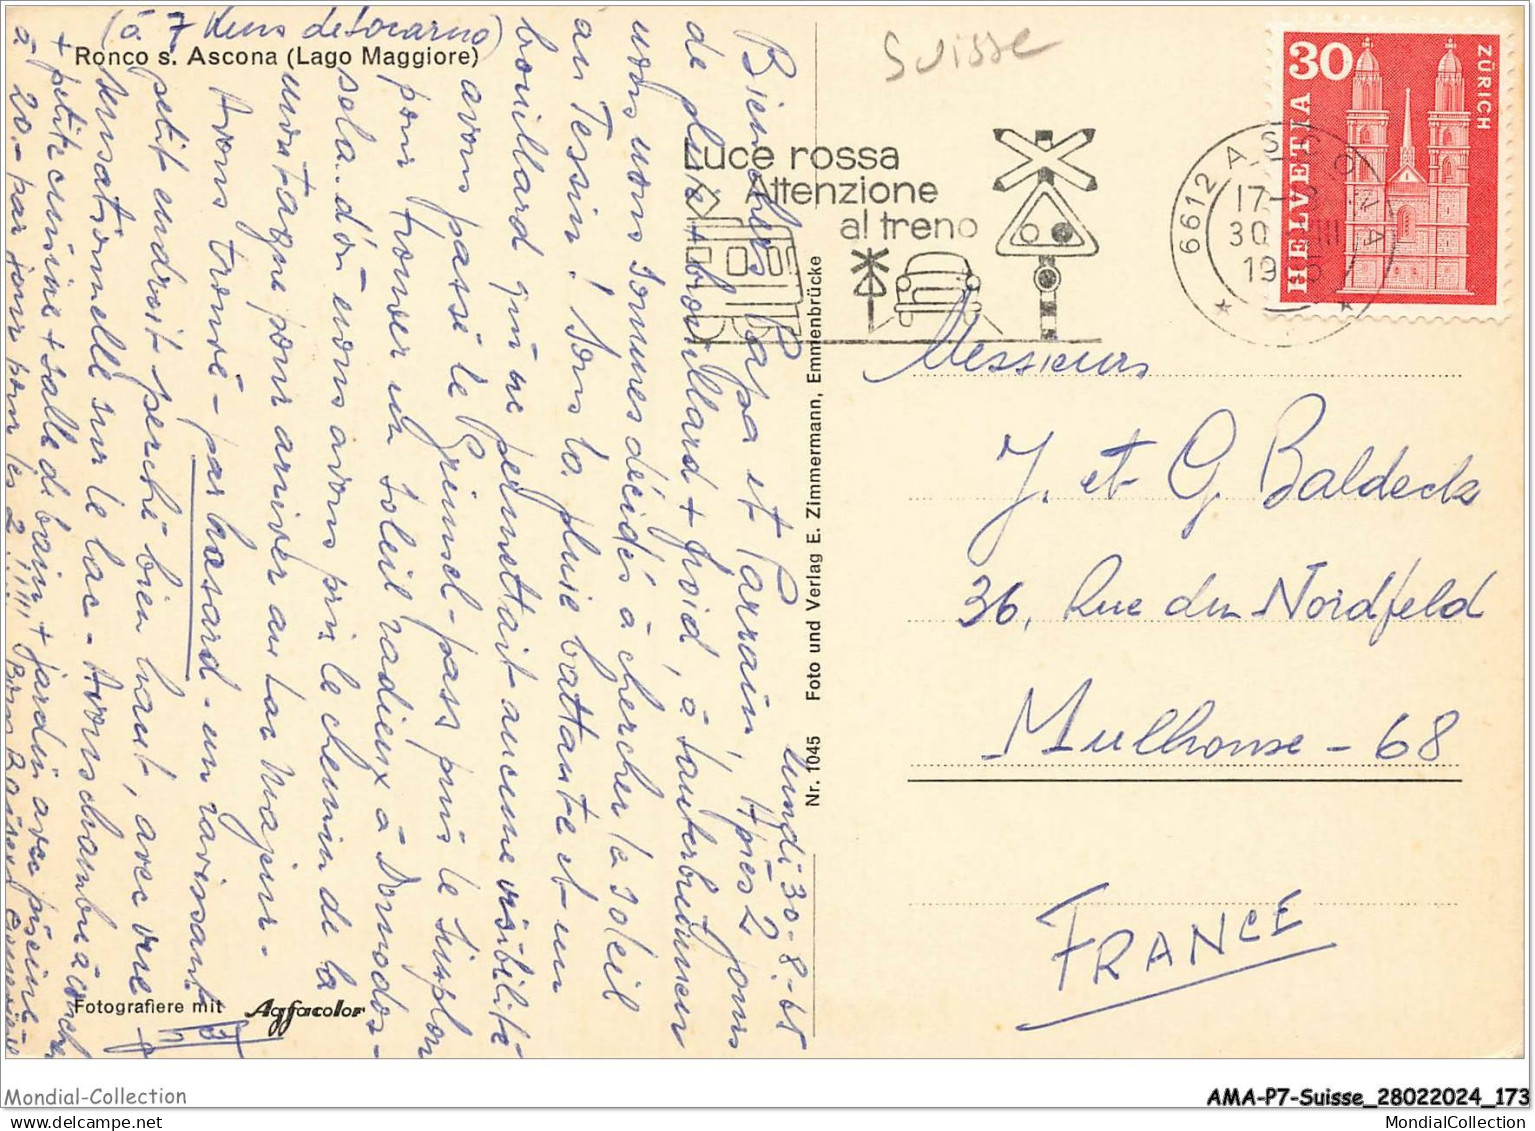 (à 7 Kms de Locarno)
Ronco s. Ascona (Lago Maggiore)
Suisse
Luce rossa
Attenzione
al treno
6612 ASCONA
17-
30 VIII
1965
30
HELVETIA
ZÜRICH
lundi 30-8-65
Bien chers Papa et Parrain, Après 2 jours
de pluie + brouillard + froid, à Lauterbrunnen
nous nous sommes décidés à chercher le soleil
au Tessin! Sous la pluie battante et un
brouillard qui ne permettait aucune visibilité
avons passé le Grimsel-pass puis le Simplon
pour trouver un soleil radieux à Domodos-
sola. d'où nous avons pris le chemin de la
montagne pour arriver au Lac Majeur.
Avons trouvé - par hasard - un ravissant
petit endroit perché bien haut, avec vue
sensationnelle sur le lac - Avons chambre à couch.
+ petite cuisine + salle de bain + jardin avec piscine -
à 20.- par jour pour les 2 !!!! Bons Baisers
Nr. 1045 Foto und Verlag E. Zimmermann, Emmenbrücke
Fotografiere mit Agfacolor
Messieurs
J. et G. Baldeck
36, Rue du Nordfeld
Mulhouse - 68
FRANCE
Mondial-Collection
AMA-P7-Suisse_28022024_173
MondialCollection.com